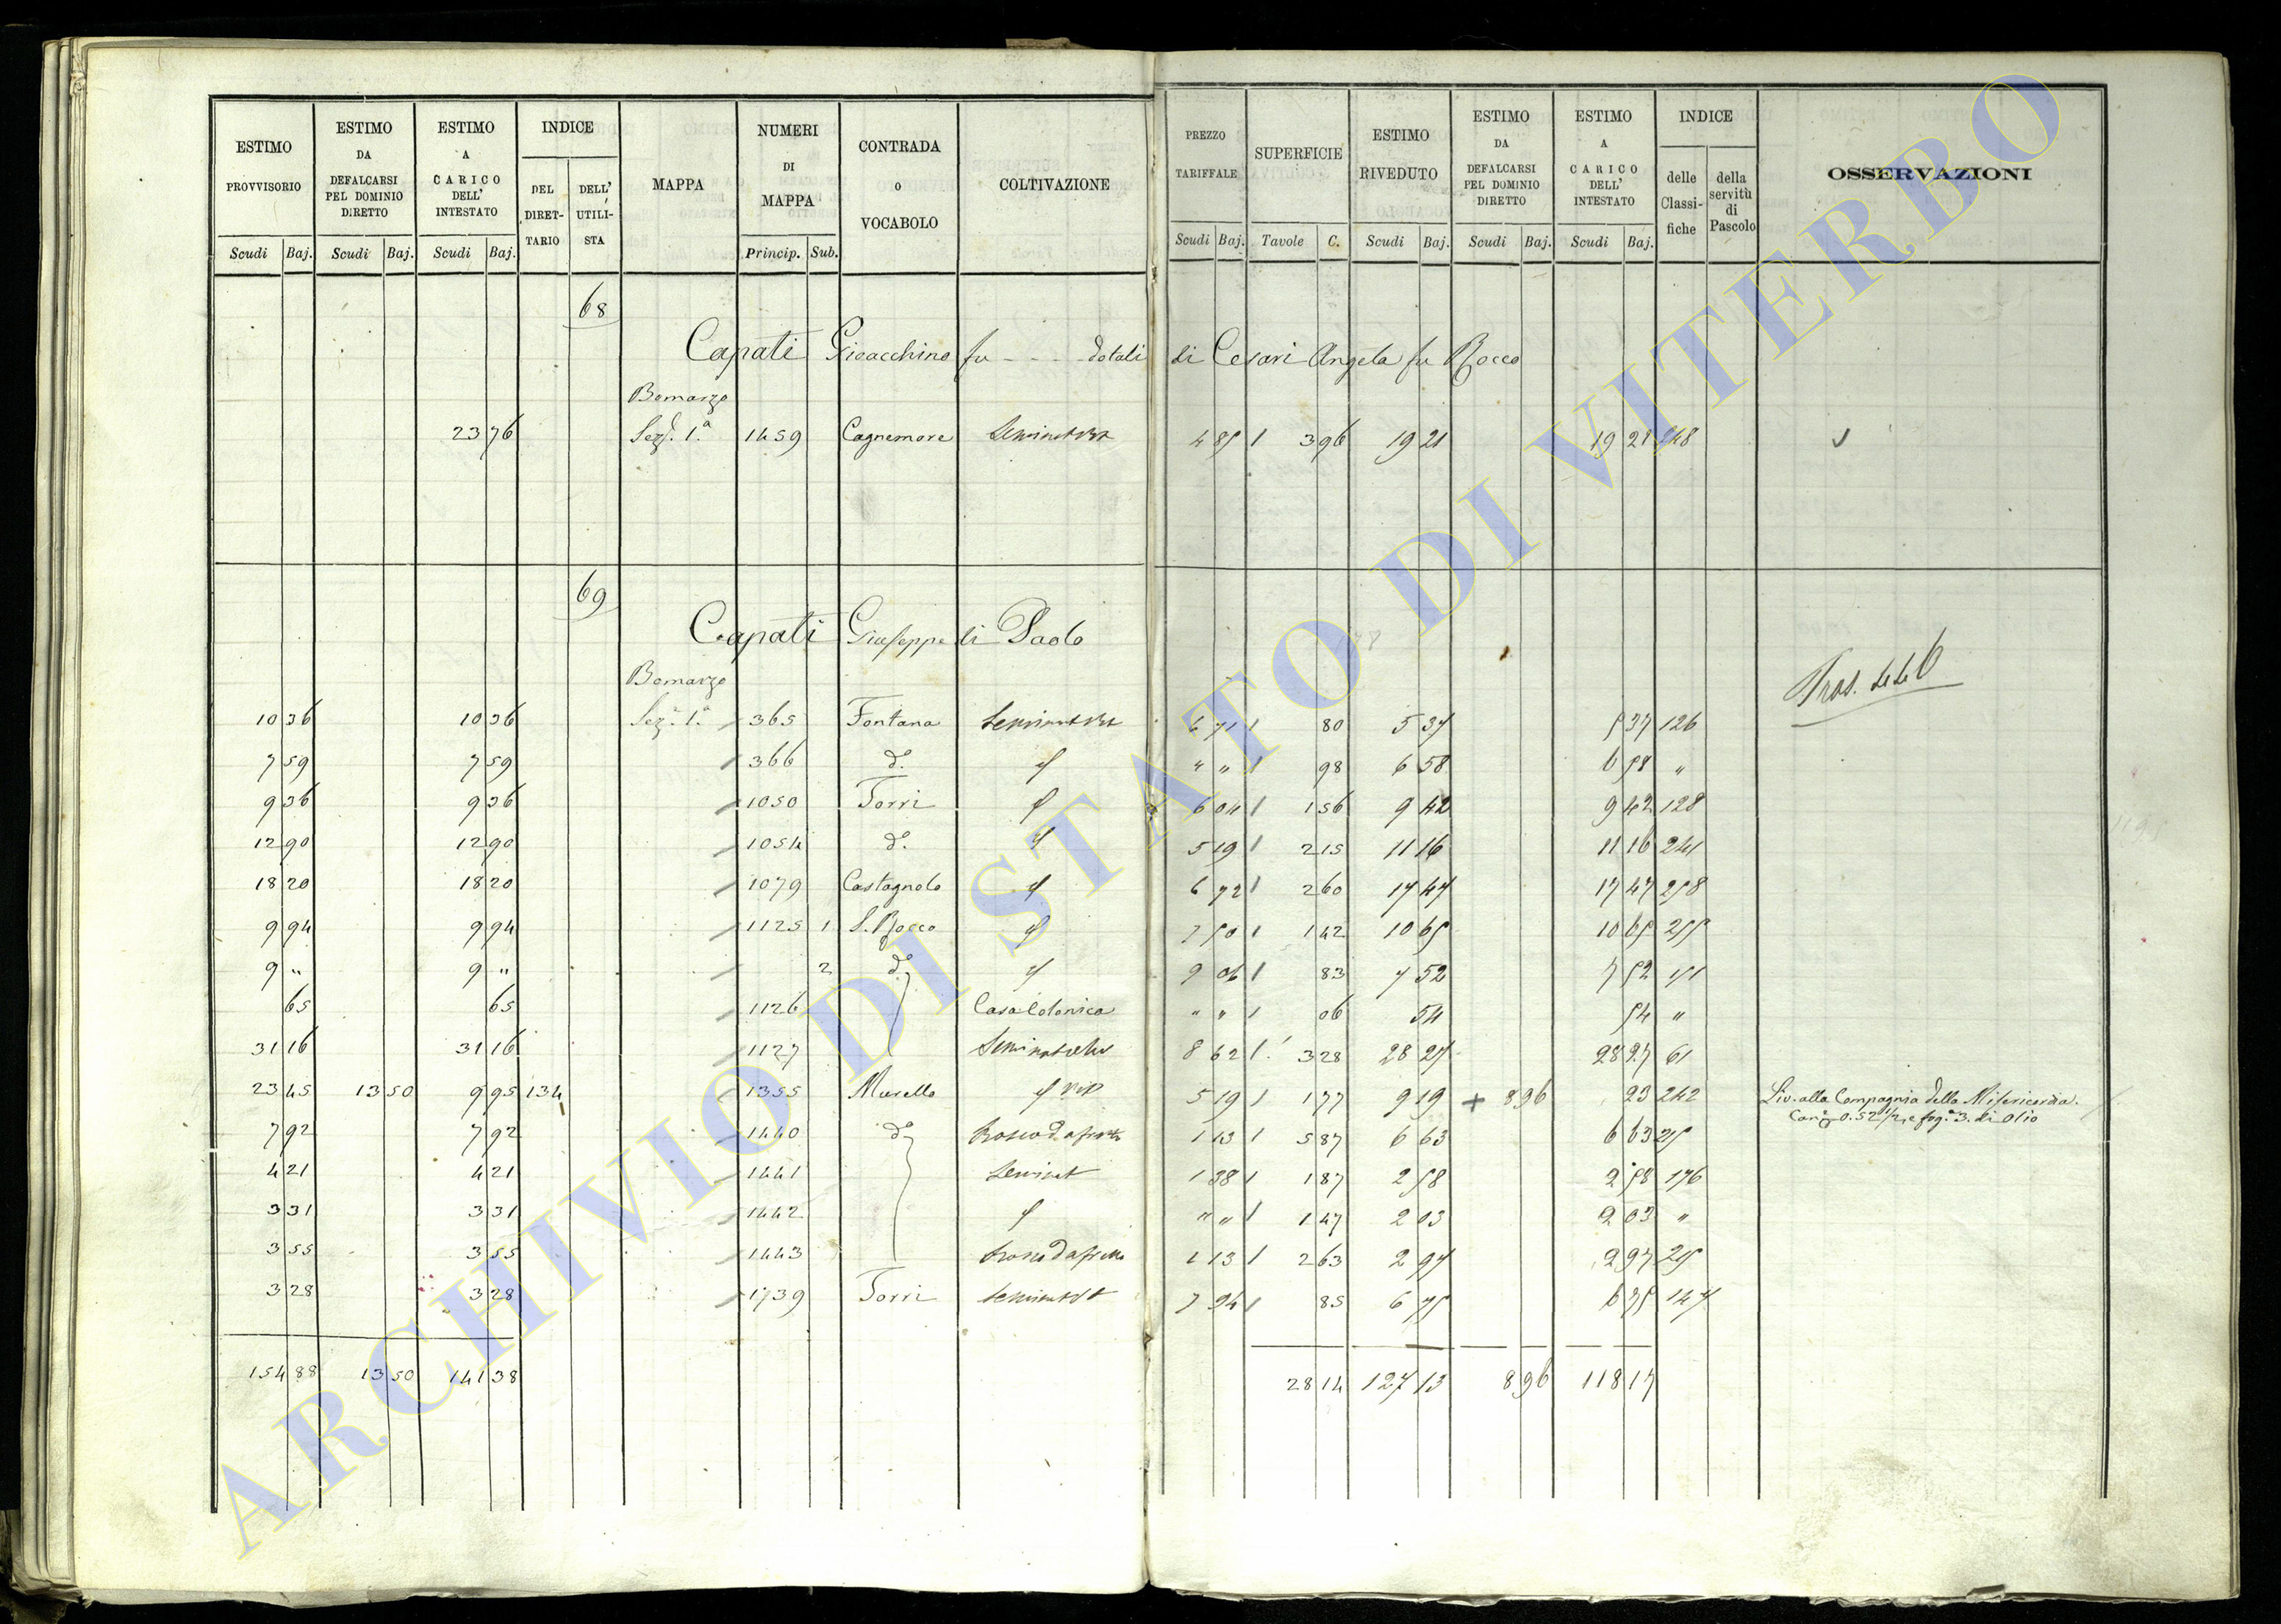 ESTIMO PROVVISORIO Scudi Baj.
ESTIMO DA DEFALCARSI PEL DOMINIO DIRETTO Scudi Baj.
ESTIMO A CARICO DELL' INTESTATO Scudi Baj.
INDICE DEL DIRET-TARIO DELL' UTILI-STA
MAPPA
NUMERI DI MAPPA Princip. Sub.
CONTRADA o VOCABOLO
COLTIVAZIONE
PREZZO TARIFFALE Scudi Baj.
SUPERFICIE Tavole C.
ESTIMO RIVEDUTO Scudi Baj.
ESTIMO DA DEFALCARSI PEL DOMINIO DIRETTO Scudi Baj.
ESTIMO A CARICO DELL' INTESTATO Scudi Baj.
INDICE delle Classi-fiche della servitù di Pascolo
OSSERVAZIONI
68
Capati Gioacchino fu - - - - dotali di Cesari Angela fu Rocco
Bomarzo
23 76 Sez. 1.a 1459 Cagnemore 4 85 3 96 19 21 19 21
69
Capati Giuseppe di Paolo
Bomarzo
10 36 10 36 Sez. 1.a 365 Fontana 6 71 80 5 37 5 37 126
7 59 7 59 366 d.o " " 98 6 58 6 58 "
9 36 9 36 1050 Torri 6 04 1 56 9 42 9 42 128
12 90 12 90 1054 d.o 5 19 2 15 11 16 11 16 241
18 20 18 20 1079 Castagnolo 6 72 2 60 17 47 17 47 258
9 94 9 94 1125 1 S. Rocco 7 50 1 42 10 65 10 65 255
9 " 9 " 2 d.o 9 06 83 7 52 7 52 151
65 65 1126 Casa Colonica " " 06 54 54 "
31 16 31 16 1127 8 62 3 28 28 27 28 27 61
23 45 13 50 9 95 134 1355 Murello 5 19 1 77 9 19 + 8 96 23 242 Liv. alla Compagnia della Misericordia.
Can.e 0.52 1/2, e fog. 3. di Olio
7 92 7 92 1440 d.o 1 13 5 87 6 63 6 63 25
4 21 4 21 1441 Seminat 1 38 1 87 2 58 2 58 176
3 31 3 31 1442 " " 1 47 2 03 2 03 "
3 55 3 55 1443 1 13 2 63 2 97 2 97 25
3 28 3 28 1739 Torri 7 94 85 6 75 6 75 147
154 88 13 50 141 38 28 14 127 13 8 96 118 17
ARCHIVIO DI STATO DI VITERBO